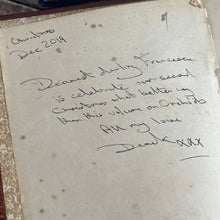 Christmas
Dec 2019
Dearest darling Francesca
to celebrate our second
Christmas what better way
than this volume on Orchids
All my love
Derek xxx